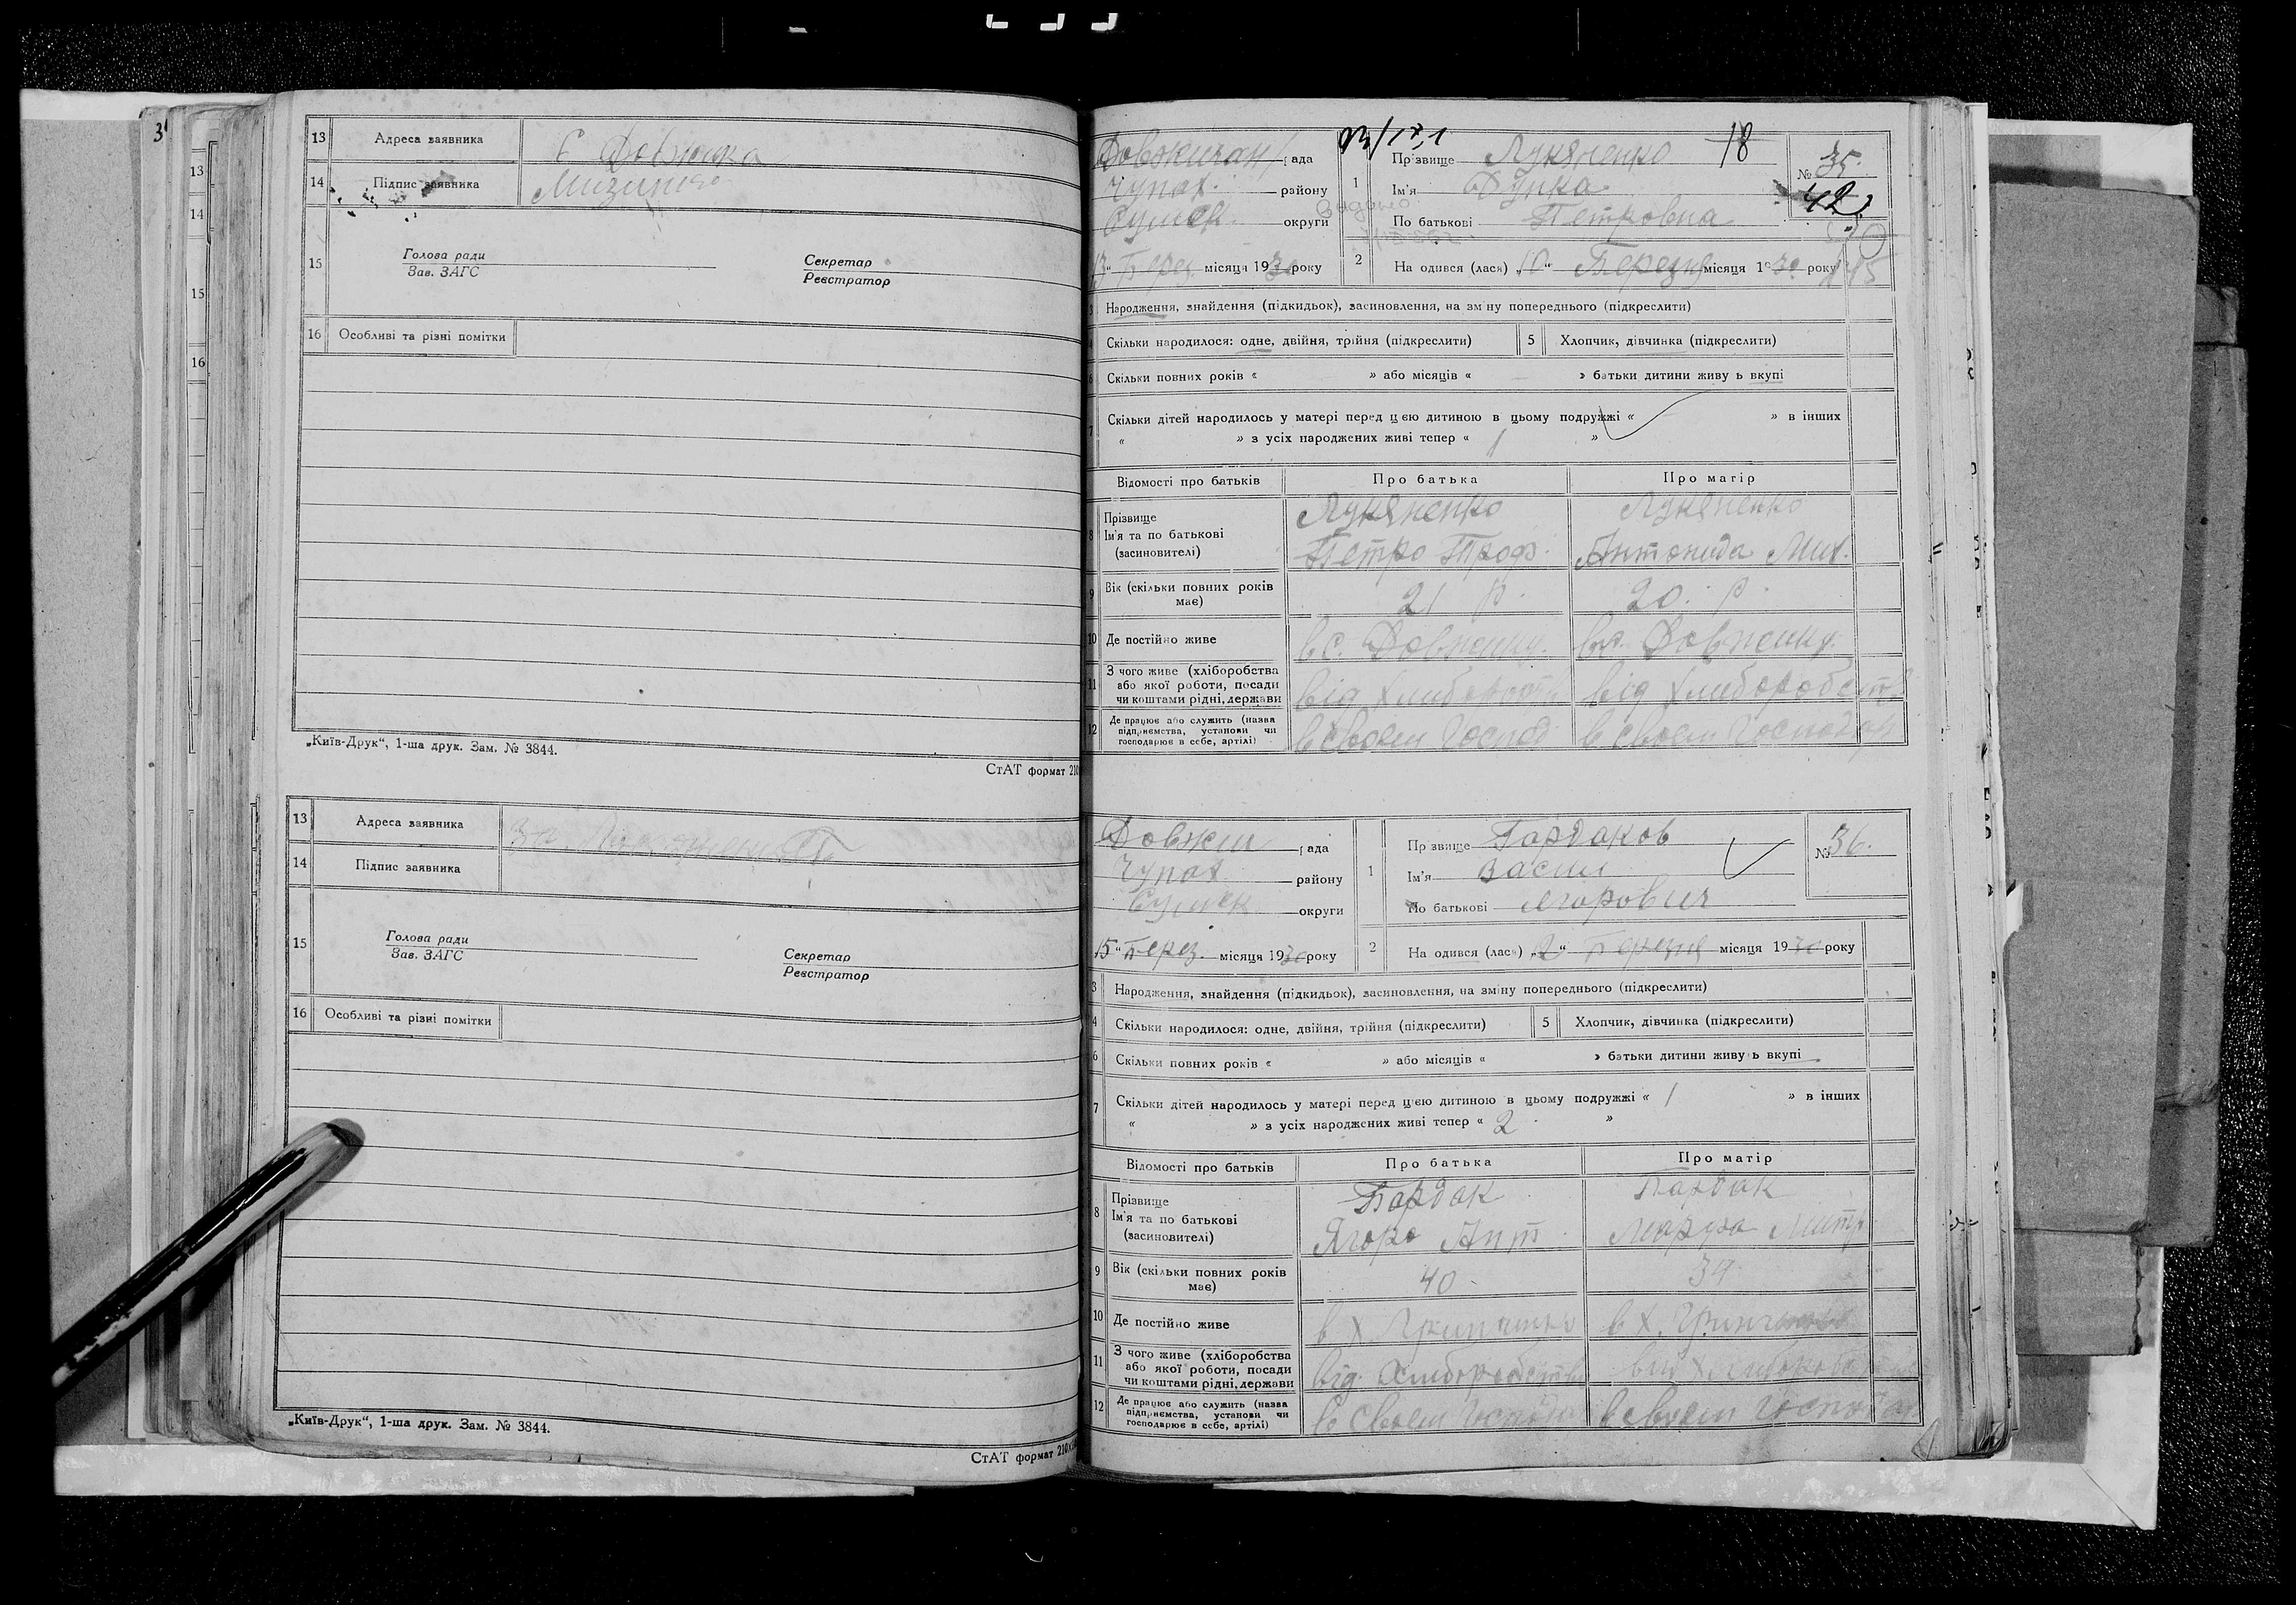 3
13
14
15
16
13 Адреса заявника С Довжика
14 Підпис заявника
15 Голова ради
Зав. ЗАГС
Секретар
Реєстратор
16 Особливі та різні помітки
„Київ-Друк“, 1-ша друк. Зам. № 3844.
СтАТ формат 210
13 Адреса заявника
14 Підпис заявника
15 Голова ради
Зав. ЗАГС
Секретар
Реєстратор
16 Особливі та різні помітки
„Київ-Друк“, 1-ша друк. Зам. № 3844.
СтАТ формат 210
18
Довжичан рада
Чупах. району
Сумск округи
13 “ Берез. місяця 1930 року
1 Прізвище Лукяненко
Ім'я Дунка
По батькові Петровна
№ 35.
42
Видано
2 Народився (лася) „10“ Березня місяця 1930 року
145
3 Народження, знайдення (підкидьок), засиновлення, на зміну попереднього (підкреслити)
4 Скільки народилося: одне, двійня, трійня (підкреслити) 5 Хлопчик, дівчинка (підкреслити)
6 Скільки повних років « » або місяців « » батьки дитини живуть вкупі
7 Скільки дітей народилось у матері перед цією дитиною в цьому подружжі « » в інших
« » з усіх народжених живі тепер « 1 »
Відомості про батьків Про батька Про матір
8 Прізвище Лукяненко Лукяненко
Ім'я та по батькові
(засиновителі) Петро Троф. Антонида Мих.
9 Вік (скільки повних років
має) 21 р. 20. р.
10 Де постійно живе в с. Довжику. в с. Довжику.
11 З чого живе (хліборобства
або якої роботи, посади
чи коштами рідні, держави від хлиборобст. від хлиборобст
12 Де працює або служить (назва
підприємства, установи чи
господарює в себе, артілі) в своем Господ в своем Господар
Довжи рада
Чупах району
Сумск округи
15 “ Берез. місяця 1930 року
1 Прізвище Гардаков
Ім'я Васил
По батькові Ягорович
№ 36.
2 Народився (лася) „12“ Березня місяця 1930 року
3 Народження, знайдення (підкидьок), засиновлення, на зміну попереднього (підкреслити)
4 Скільки народилося: одне, двійня, трійня (підкреслити) 5 Хлопчик, дівчинка (підкреслити)
6 Скільки повних років « » або місяців « » батьки дитини живуть вкупі
7 Скільки дітей народилось у матері перед цією дитиною в цьому подружжі « 1 » в інших
« » з усіх народжених живі тепер « 2 »
Відомості про батьків Про батька Про матір
8 Прізвище Бардак Бардак
Ім'я та по батькові
(засиновителі) Ягоро Ант. Марфа Митр
9 Вік (скільки повних років
має) 40 39
10 Де постійно живе в х. в х.
11 З чого живе (хліборобства
або якої роботи, посади
чи коштами рідні, держави від. хлиборобств
12 Де працює або служить (назва
підприємства, установи чи
господарює в себе, артілі) в своем Господ в своем Господар